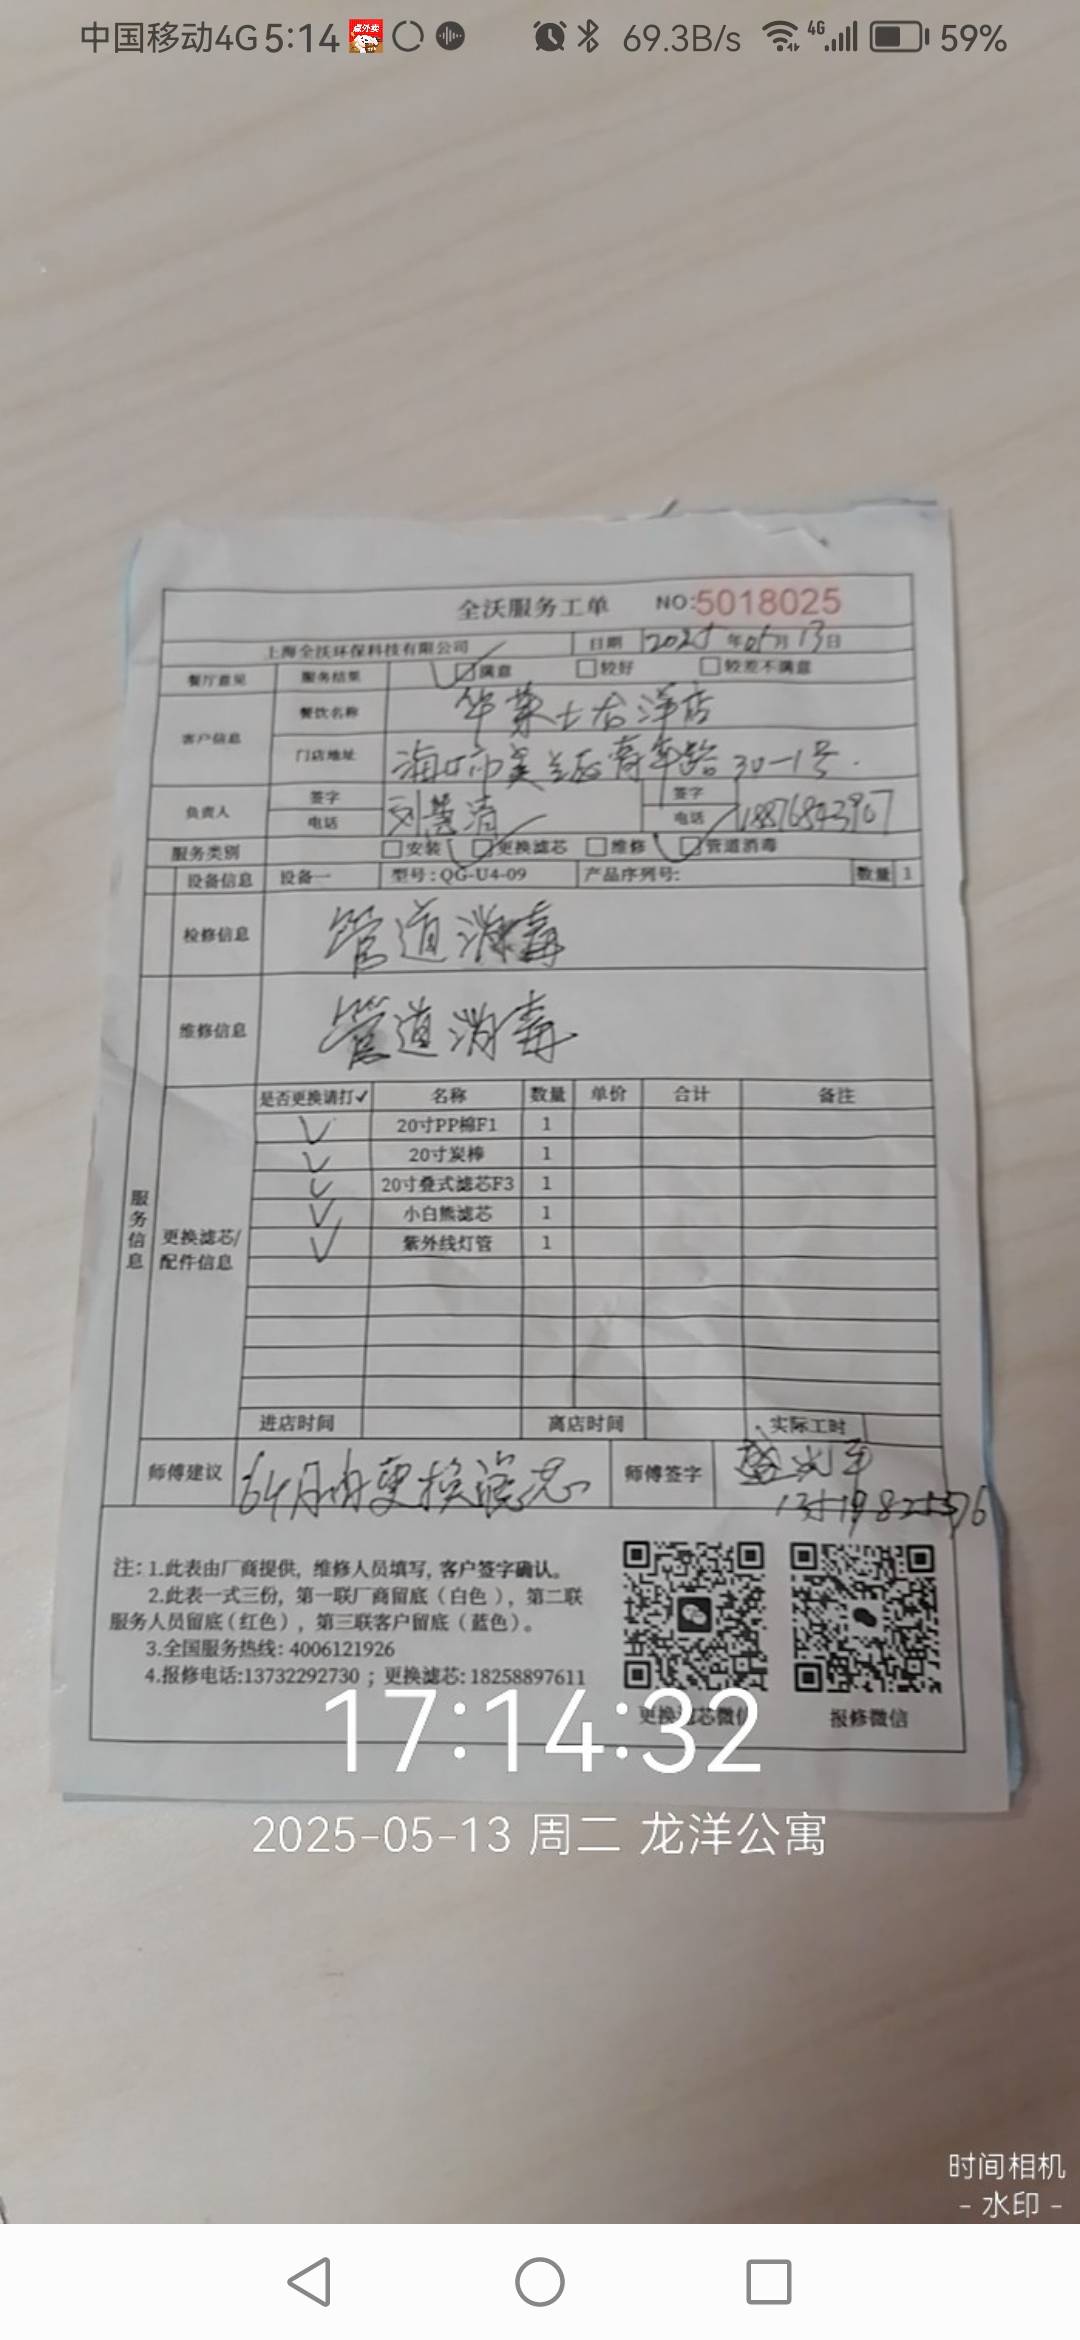 中国移动4G 5:14 69.3B/s 4G 59%
全沃服务工单 NO:5018025
上海全沃环保科技有限公司 日期 2025年05月13日
餐厅意见 服务结果 满意 较好 较差不满意
客户信息 餐饮名称 华莱士龙洋店
门店地址 海口市美兰区青年路30-1号.
负责人 签字 签字
电话 刘慧清 电话 18876843967
服务类别 安装 更换滤芯 维修 管道消毒
设备信息 设备一 型号:QG-U4-09 产品序列号: 数量 1
检修信息 管道消毒
维修信息 管道消毒
是否更换请打✓ 名称 数量 单价 合计 备注
✓ 20寸PP棉F1 1
✓ 20寸炭棒 1
✓ 20寸叠式滤芯F3 1
✓ 小白熊滤芯 1
✓ 紫外线灯管 1
服务信息 更换滤芯/
配件信息
进店时间 离店时间 实际工时
师傅建议 6个月内更换滤芯 师傅签字
注: 1.此表由厂商提供, 维修人员填写, 客户签字确认。
2.此表一式三份, 第一联厂商留底 ( 白色 ), 第二联
服务人员留底 (红色), 第三联客户留底 ( 蓝色 )。
3.全国服务热线: 4006121926
4.报修电话:13732292730 ; 更换滤芯: 18258897611
更换滤芯微信 报修微信
17:14:32
2025-05-13 周二 龙洋公寓
时间相机
- 水印 -